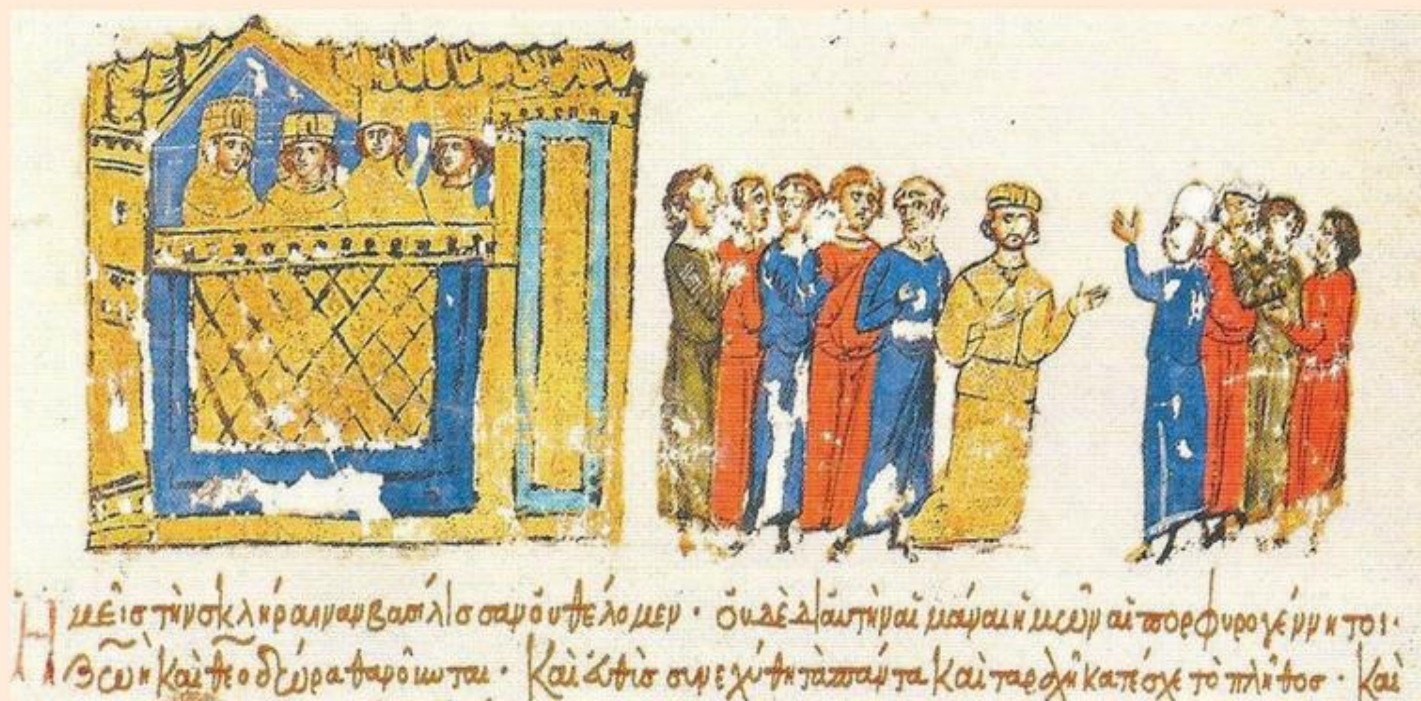 Ημεῖς τὴν σκλήραιναν βασίλισσαν οὐ θέλομεν · οὐδὲ δι αυτὴν αἱ μάναι ἡμῶν αἱ πορφυρογέννητοι ·
ζωὴ καὶ θεοδώρα θανοῦνται · Καὶ αὖθις συνεχύθη τὰ πάντα καὶ ταραχὴ κατέσχε τὸ πλῆθος · Καὶ